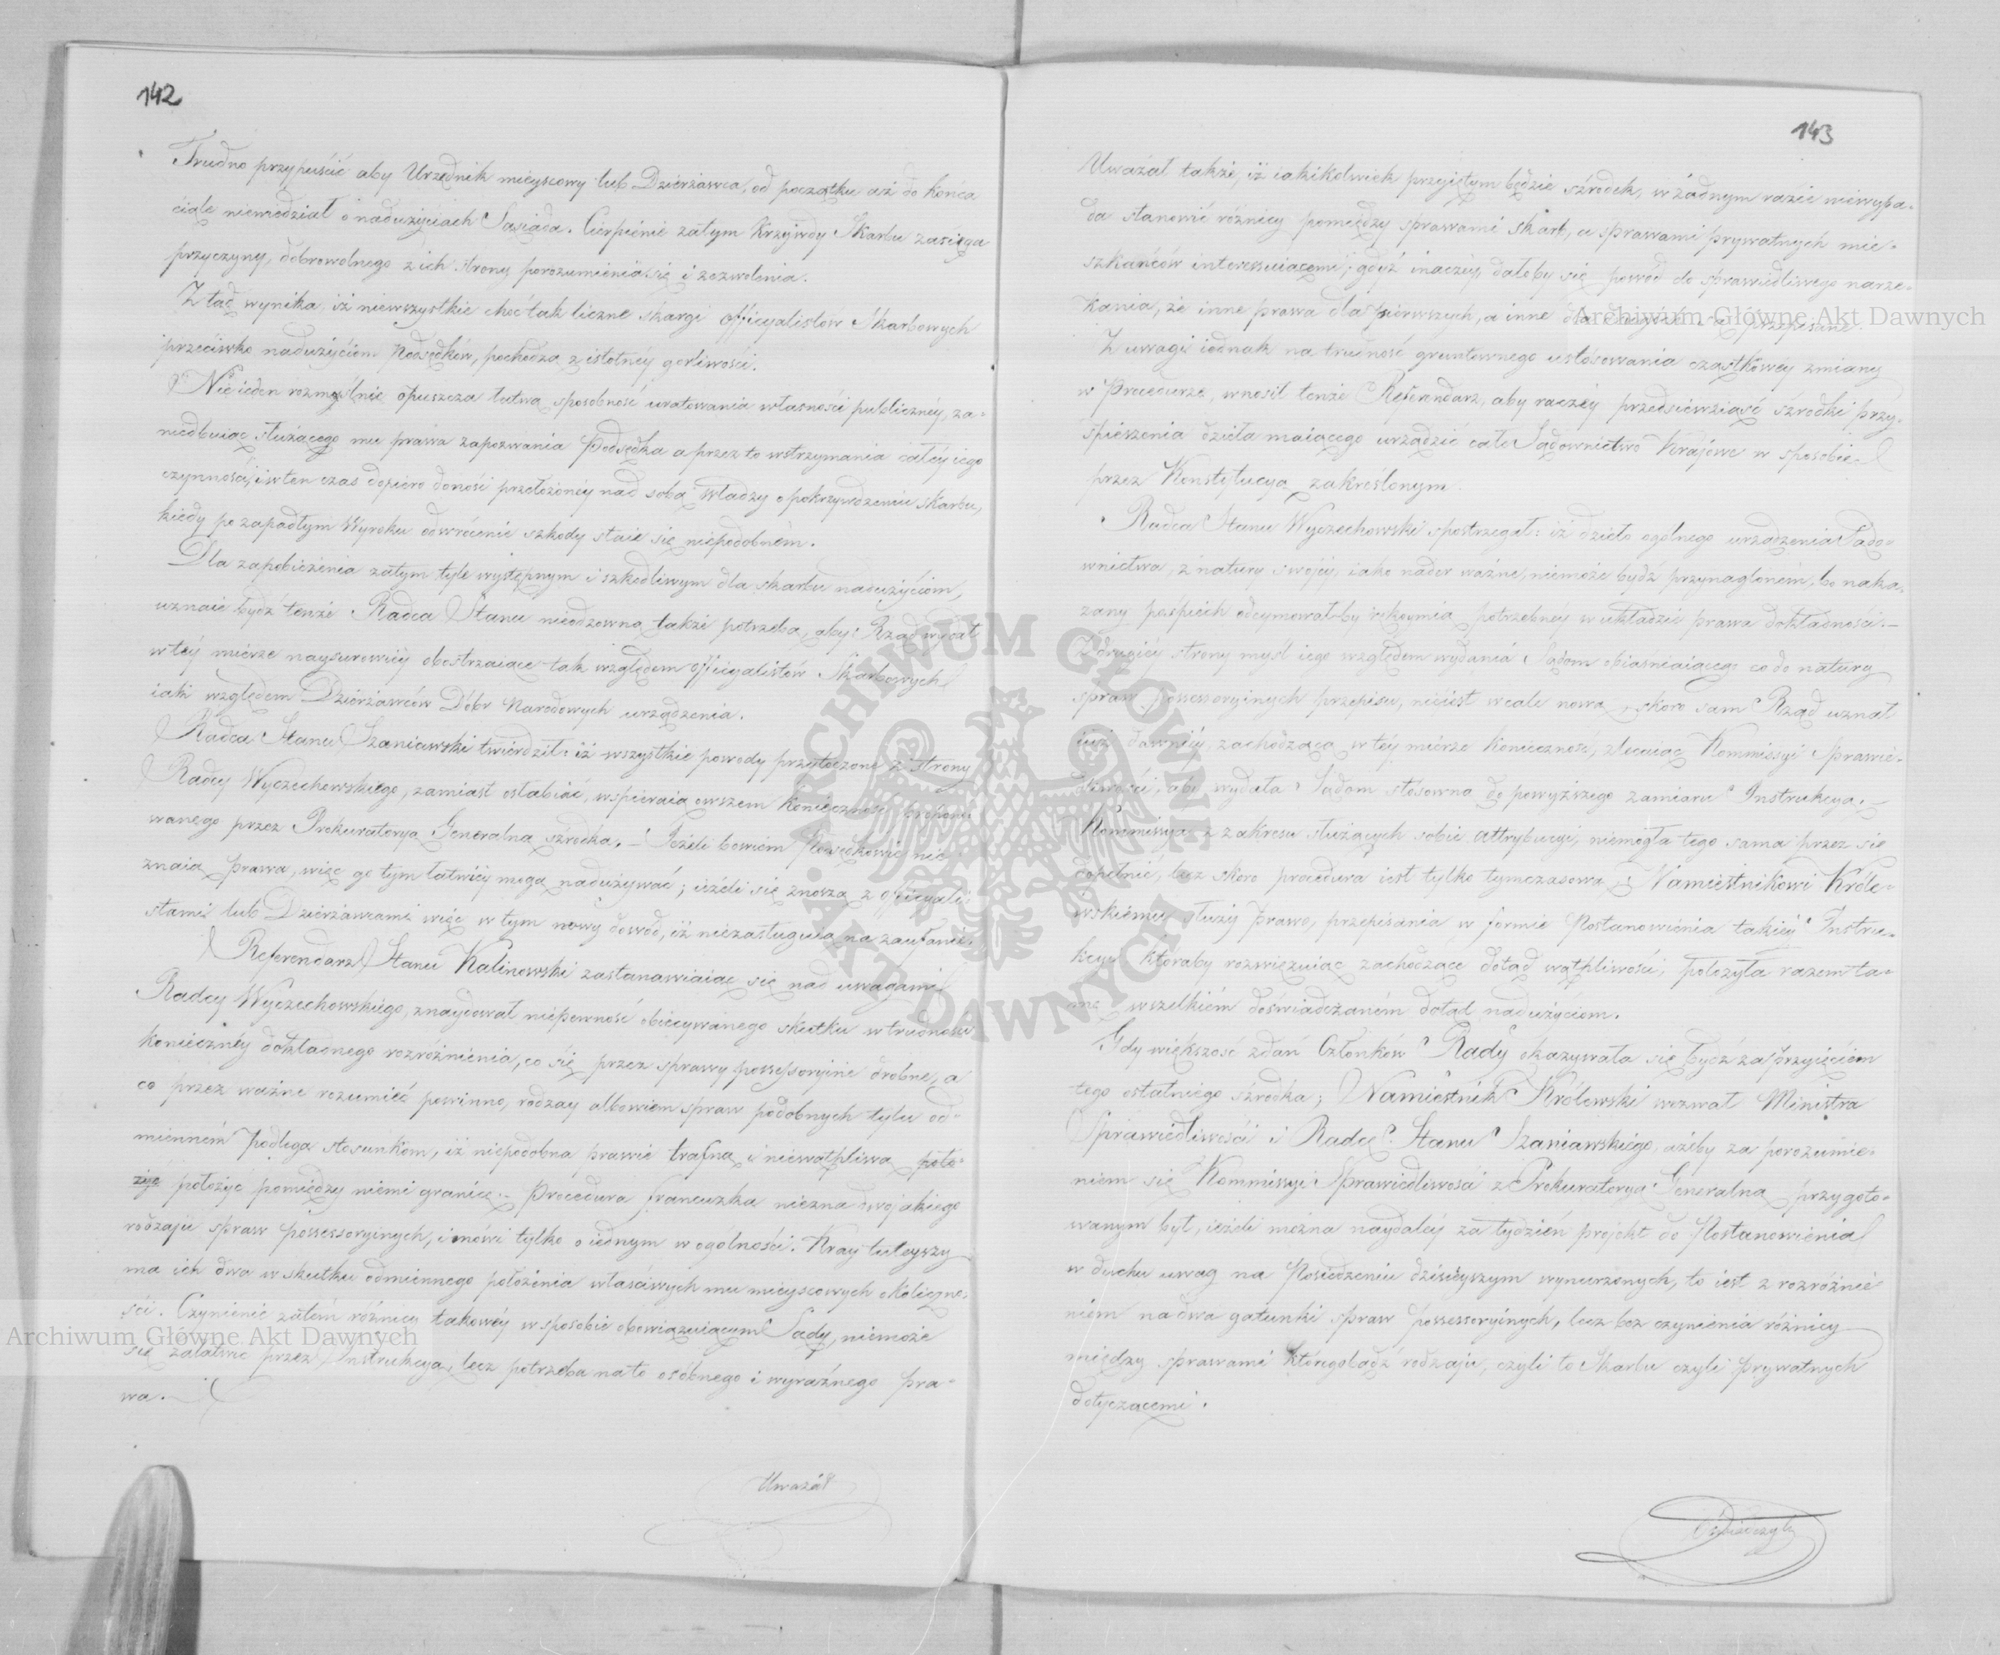 142
Trudno przypuścić aby Urzędnik mieyscowy lub Dzierżawca, od początku aż do końca
ciągle niewiedział o nadużyciach Sąsiada. Cierpienie zatym Krzywdy Skarbu zasięga
przyczyny, dobrowolnego z ich strony porozumienia się i zezwolenia.
Ztąd wynika, iż niewszystkie choć tak liczne skargi officyalistów Skarbowych
przeciwko nadużyciom Podsędków, pochodzą z istotnéy gorliwości.
Nie ieden rozmyślnie opuszcza łatwą sposobność uratowania własności publicznéy, za-
niedbuiąc służącego mu prawa zapozwania Podsędka a przez to wstrzymania całéy iego
czynności, i w ten czas dopiéro donosi przełożonéy nad sobą Władzy o pokrzywdzeniu skarbu,
kiedy po zapadłym Wyroku odwrócenie szkody staie się niepodobném.
Dla zapobieżenia zatym tyle występnym i szkodliwym dla skarbu nadużyciom,
uznaie bydź tenże Radca Stanu nieodzowną także potrzebą, aby Rząd wydał
w téy mierze naysurowiéy obostrzaiące tak względem officyalistów Skarbowych
iak względem Dzierżawców Dóbr Narodowych urządzenia.
Radca Stanu Szaniawski twierdził: iż wszystkie powody przytoczone z strony
Radcy Wyczechowskiego, zamiast osłabiać, wspieraią owszem konieczność propono-
wanego przez Prokuratoryą Generalną szrodka. – Jeżeli bowiem Podsędkowie nie
znaią prawa, więc go tym łatwiéy mogą nadużywać; ieżeli się znoszą z officyali-
stami lub Dzierżawcami więc w tym nowy dowód, iż niezasługuią na zaufanie.
Referendarz Stanu Kalinowski zastanawiaiąc się nad uwagami
Radcy Wyczechowskiego, znaydował niepewność obiecywanego skutku w trudności
koniecznéy dokładnego rozróżnienia, co się przez sprawy possessoryine drobne, a
co przez ważne rozumieć powinno, rodzay albowiem spraw podobnych tylu od-
miennem podlega stosunkom, iż niepodobna prawie trafną i niewątpliwą poło-
żyć położyć pomiędzy niemi granicę. – Procedura francuzka niezna dwojakiego
rodzaju spraw possessoryinych, i mówi tylko o iednym w ogólności. Kray tuteyszy
ma ich dwa w skutku odmiennego położenia właściwych mu mieyscowych okoliczno-
ści. Czynienie zatém różnicy takowéy w sposobie obowiązuiącym Sądy, niemoże
się załatwić przez Instrukcyą, lecz potrzeba na to osóbnego i wyraźnego pra-
wa.
Uważał
143
Uważał także, iż iakikolwiek przyiętym będzie szrodek, w żadnym razie niewypa-
da stanowić różnicy pomiędzy sprawami skarb, a sprawami prywatnych mie-
szkańców interessuiącemi; gdyż inaczéy dałoby się powód do sprawiedliwego narze-
kania, że inne prawa dla pierwszych, a inne dla drugich są przepisane.
Z uwagi iednak na trudność gruntownego ustosowania cząstkowéy zmiany
w Procedurze, wnosił tenże Referendarz, aby raczéy przedsięwziąść szrodki przy-
spieszenia dzieła maiącego urządzić całe Sądownictwo Krajowe w sposobie
przez Konstytucyą zakreślonym.
Radca Stanu Wyczechowski spostrzegał: iż dzieło ogólnego urządzenia Sądo-
wnictwa, z natury swojéy, iako nader ważne, niemoże bydź przynaglonem, bo naka-
zany pośpiech odeymował by rękoymią potrzebnéy w układzie prawa dokładności. –
Z drugiéy strony myśl iego względem wydania Sądom obiaśniaiącego co do natury
spraw possessoryinych przepisu, nie iest wcale nową, skoro sam Rząd uznał
iuż dawniéy zachodzącą w téy mierze konieczność, zlecaiąc Kommissyi Sprawie-
dliwości, aby wydała Sądom stósowną do powyższego zamiaru Instrukcyą. –
Kommissya z zakresu służących sobie attrybucyi, niemogła tego sama przez się
dopełnić, lecz skoro procedura iest tylko tymczasową, Namiestnikowi Króle-
wskiemu służy prawo, przepisania w formie Postanowienia takiéy Instru-
kcyi, któraby rozwięzuiąc zachodzące dotąd wątpliwości, położyła razem ta-
mę wszelkiém doświadczaném dotąd nadużyciom.
Gdy większość zdań Członków Rady okazywała się bydź za przyięciem
tego ostatniego szrodka; Namiestnik Królewski wezwał Ministra
Sprawiedliwości i Radcę Stanu Szaniawskiego, ażeby za porozumie-
niem się Kommissyi Sprawiedliwości z Prokuratoryą Generalną przygoto-
wanym był, ieżeli można naydaléy za tydzień projekt do Postanowienia
w duchu uwag na Posiedzeniu dzisieyszym wynurzonych, to iest z rozróżnie-
niem na dwa gatunki spraw possessoryinych, lecz bez czynienia różnicy
między sprawami któregobądź rodzaju, czyli to Skarbu czyli prywatnych
dotyczącemi.
Archiwum Główne Akt Dawnych
Archiwum Główne Akt Dawnych
ARCHIWUM GŁÓWNE AKT DAWNYCH